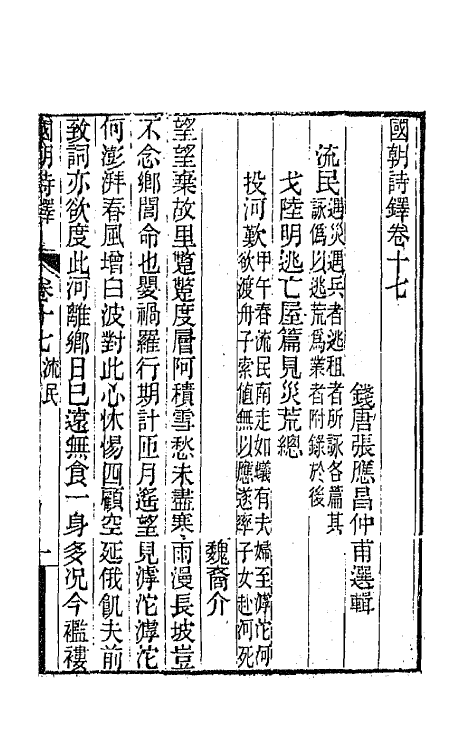 國朝詩鐸卷十七
錢唐張應昌仲甫選輯
流民遇災遇兵者逃租者所詠各篇其
詠僞以逃荒爲業者附錄於後
戈陸明逃亡屋篇見災荒總
投河歎甲午春流民南走如蟻有夫婦至滹沱河
欲渡舟子索值無以應遂率子女赴河死
魏裔介
望望棄故里蹩蹩度層阿積雪愁未盡寒雨漫長坡豈
不念鄉閭命也嬰禍羅行期計匝月遙望見滹沱滹沱
何澎湃春風增白波對此心怵惕四顧空延俄飢夫前
致詞亦欲度此河離鄉日已遠無食一身多况今襤褸
國朝詩鐸 卷十七 流民 一